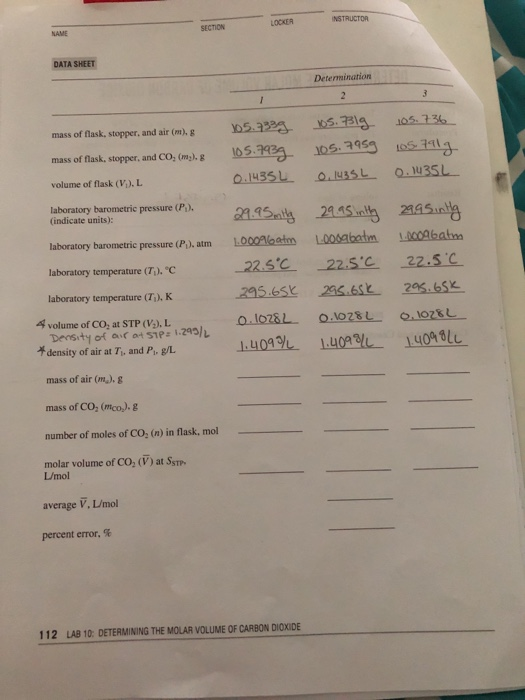 NAME SECTION LOCKER INSTRUCTOR
DATA SHEET
Determination
1 2 3
mass of flask, stopper, and air (m), g 105.733g 105.731g 105.736
mass of flask, stopper, and CO₂ (m₂), g 105.793g 105.795g 105.791g
volume of flask (V₁), L 0.1435L 0.1435L 0.1435L
laboratory barometric pressure (P₁),
(indicate units): 29.95inHg 29.95inHg 29.95inHg
laboratory barometric pressure (P₁), atm 1.00096atm 1.00096atm 1.00096atm
laboratory temperature (T₁), °C 22.5°C 22.5°C 22.5°C
laboratory temperature (T₁), K 295.65K 295.65K 295.65K
volume of CO₂ at STP (V₂), L 0.1028L 0.1028L 0.1028L
Density of air at STP = 1.29g/L
* density of air at T₁, and P₁, g/L 1.409g/L 1.409g/L 1.409g/L
mass of air (mₐ), g
mass of CO₂ (mCO₂), g
number of moles of CO₂ (n) in flask, mol
molar volume of CO₂ (V̅) at SSTP,
L/mol
average V̅, L/mol
percent error, %
112 LAB 10: DETERMINING THE MOLAR VOLUME OF CARBON DIOXIDE